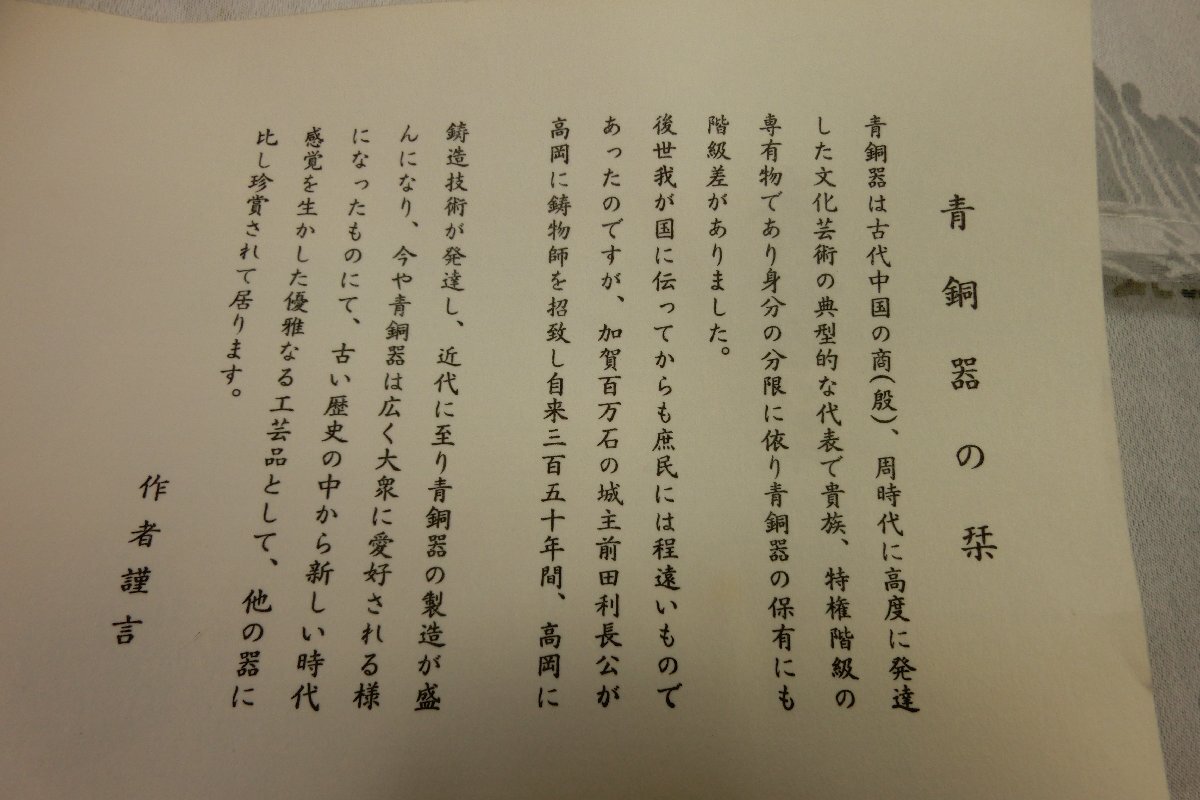 青銅器の栞
青銅器は古代中国の商(殷)、周時代に高度に発達
した文化芸術の典型的な代表で貴族、特権階級の
専有物であり身分の分限に依り青銅器の保有にも
階級差がありました。
後世我が国に伝ってからも庶民には程遠いもので
あったのですが、加賀百万石の城主前田利長公が
高岡に鋳物師を招致し自来三百五十年間、高岡に
鋳造技術が発達し、近代に至り青銅器の製造が盛
んになり、今や青銅器は広く大衆に愛好される様
になったものにて、古い歴史の中から新しい時代
感覚を生かした優雅なる工芸品として、他の器に
比し珍賞されて居ります。
作者謹言